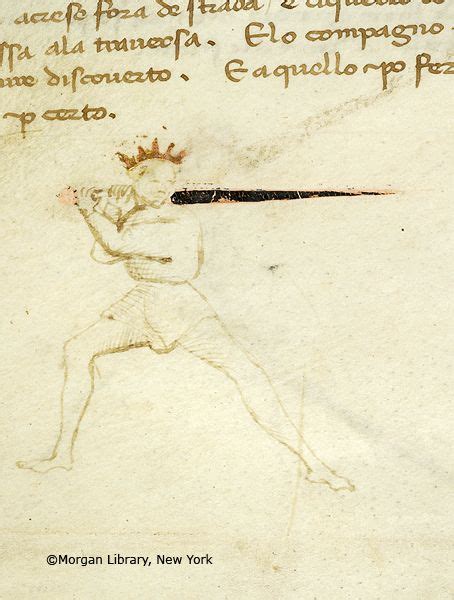 acrese fora de strada, e
ssa ala trauersa. Elo compagno.
discouerto. E a quello po fer
p certo.
©Morgan Library, New York